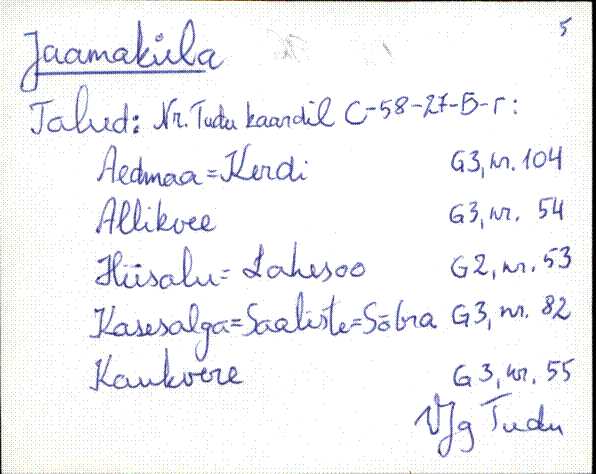 5
Jaamaküla
Talud: Nr. Tudu kaardil C-58-27-Б-г:
Aedmaa=Kerdi G3, nr. 104
Allikvee G3, nr. 54
Hiisalu=Lahesoo G2, nr. 53
Kasesalga=Saaliste=Sõbra G3, nr. 82
Kaukvere G3, nr. 55
VJg Tudu